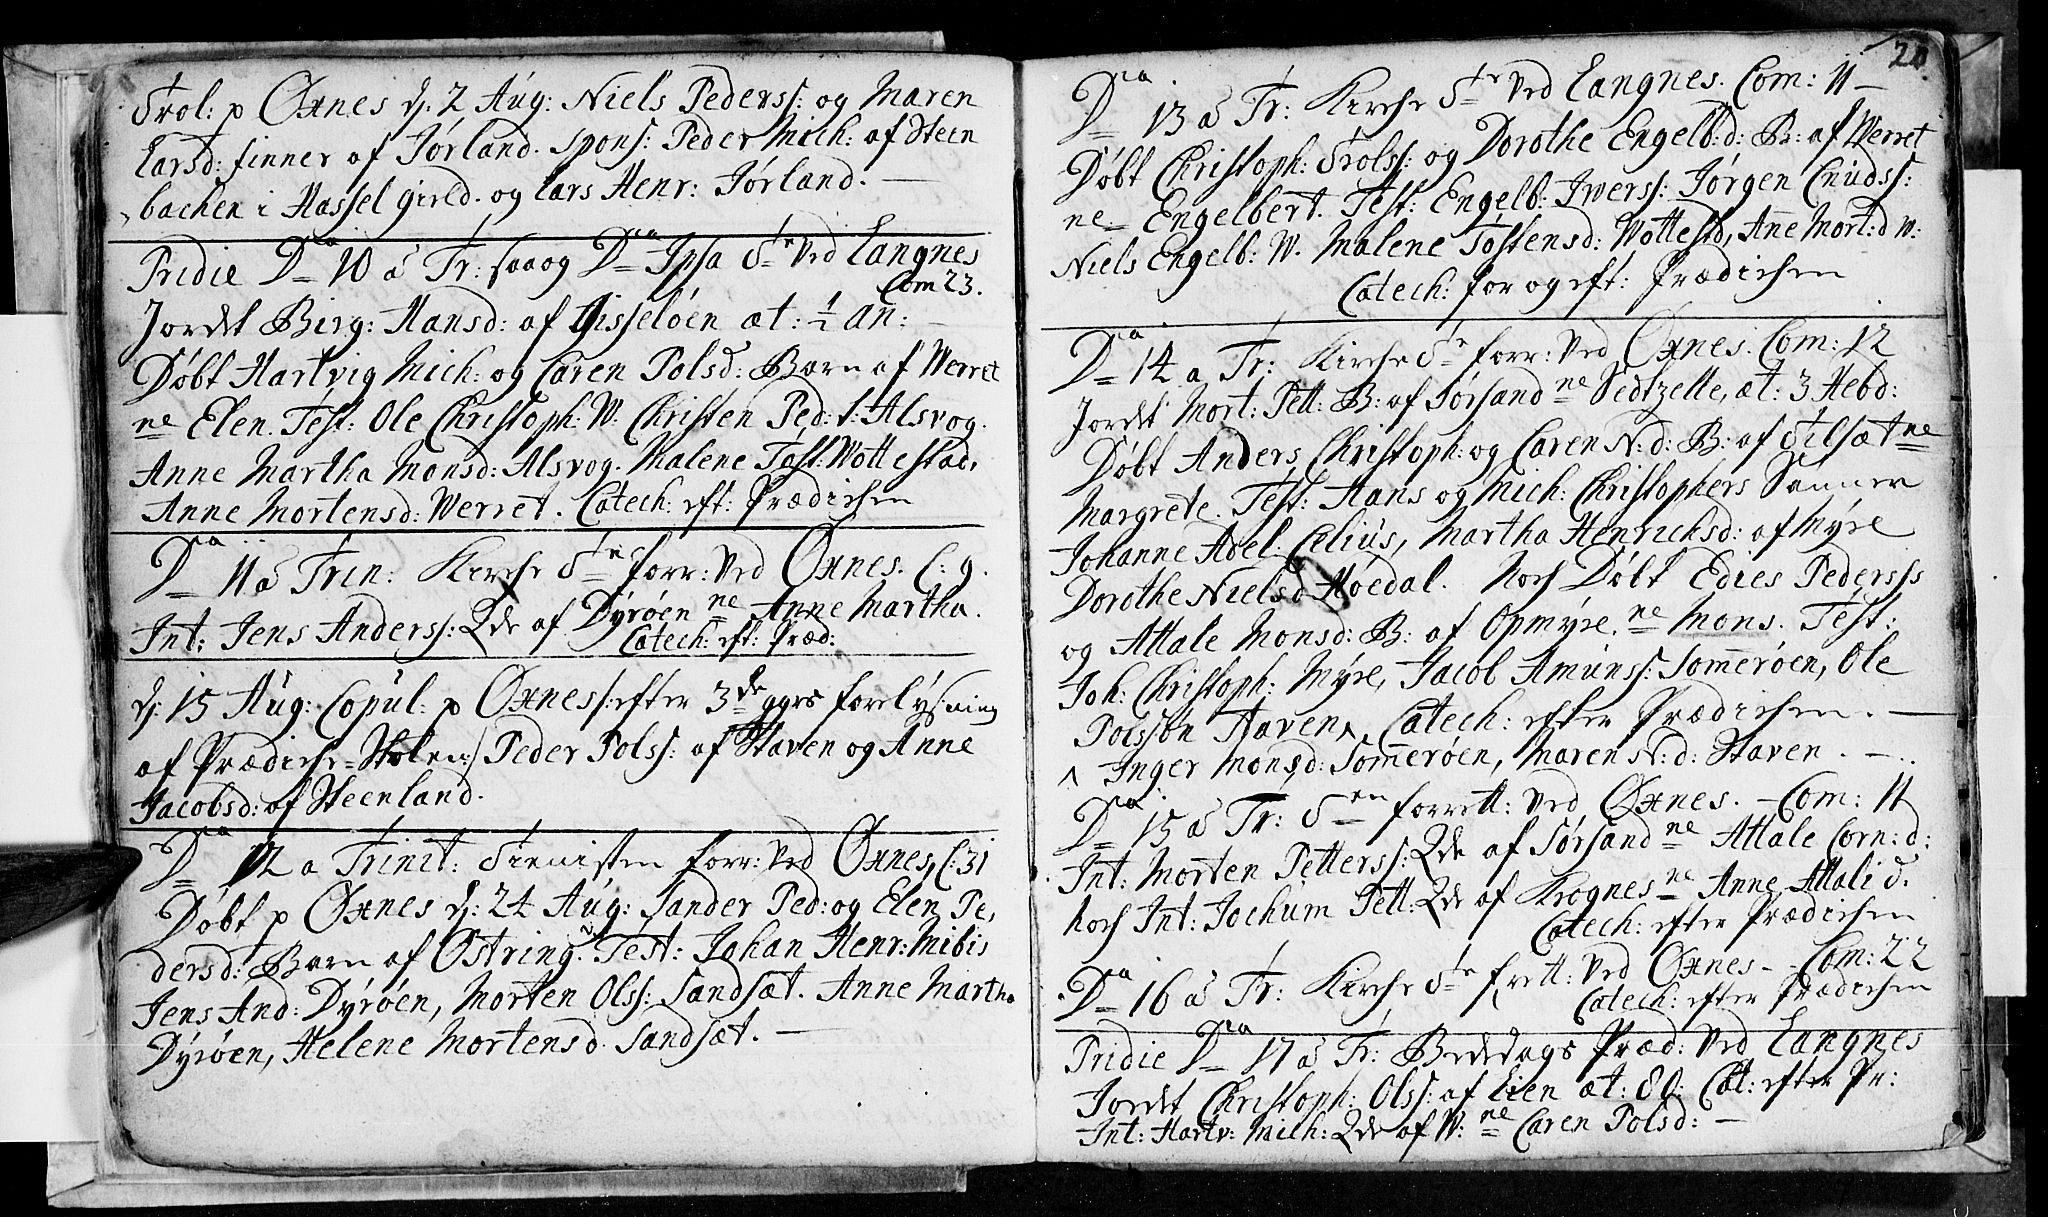 Trol: p Øxnes d: 2 Aug: Niels Pederss: og Maren
Larsd: finner af Jørland. Spons: Peder Mich: af Steen
bachen i Hassel gield. og Lars Henr: Jørland.
Pridie Dca 10 a Tr: saa og Dca Ipsa Ste ved Langnes
Com 23.
Jordet Birg: Hansd: af Gisseløen æt: ½ An:
Døbt Hartvig Mich: og Caren Polsd: Barn af Werret
ne Elen. Test: Ole Christoph: W. Christen Ped: s: Alsvog.
Anne Martha Monsd: Alsvog. Malene Tøst: Wottestad,
Anne Mortensd: Werret. Catech: eft: Prædichen
Dca 11 a Trin: Kirche Ste forr: ved Øxnes. C: 9.
Int: Jens Anderss: Qde af Dyrøen ne Anne Martha.
Catech: eft: Præd:
d: 15 Aug: Copul: p Øxnes /: efter 3de ggrs forelysning
af Prædiche=Stolen :/ Peder Polss: af Staven og Anne
Jacobsd: af Steenland.
Dca 12 a Trinit: Tienisten forr: ved Øxnes, C: 31
Døbt p Øxnes d: 24 Aug: Sander Ped: og Elen Pe,
dersd: Barn af Østring. Test: Johan Henr: Mibis
Jens And: Dyrøen, Morten Olss: Sandsæt. Anne Martha
Dyrøen, Helene Mortensd. Sandsæt.
20.
Dca 13 a Tr: Kirche Ste ved Langnes. Com: 11
Døbt Christoph: Trolss: og Dorothe Engelb: d: B: af Werret
ne Engelbert. Test: Engelb: Iwerss: Jørgen Cnudss:
Niels Engelb: W. Malene Tøstensd: Wottestd, Anne Mort: d W:
Catech: for og eft: Prædichen
Dca 14 a Tr: Kirche Ste forr: ved Øxnes. Com: 12
Jordet Mort: Pett: B: af Sørsand ne Sedtzelle, æt: 3 Hebd:
Døbt Anders Christoph: og Caren N: d: B: af Tilsæt ne
Margrete. Test: Hans og Mich: Christophers Sønner
Johanne Abel. Celius, Martha Henrichsd: af Myre
Dorothe Nielsd Høedal. Noch Døbt Edies Pederss
og Attale Monsd: B: af Opmyre, ne Mons. Test:
Joh: Christoph: Myre, Jacob Amunss: Sommerøen, Ole
Polssøn Staven ^ Catech: efter Prædichen.
^ Inger Monsd: Sommerøen, Maren N: d: Staven.
Dca 15 a Tr: Ten forrett: ved Øxnes. Com: 11
Int: Morten Petterss: Qde af Sørsand ne Attale Corn: d:
noch Int: Jochum Pett: Qde af Krognes ne Anne Attali d.
Catech: efter Prædichen
Dca 16 a Tr: Kirche Ste frett: ved Øxnes. Com: 22
Catech: efter Prædichen
Pridie Dca 17 a Tr: Bededags Præd: ved Langnes
Jordet Christoph: Olss: af Eien æt: 80: Cat: efter Pr:
Int: Hartv: Mich: Qde af W: ne Caren Polsd: